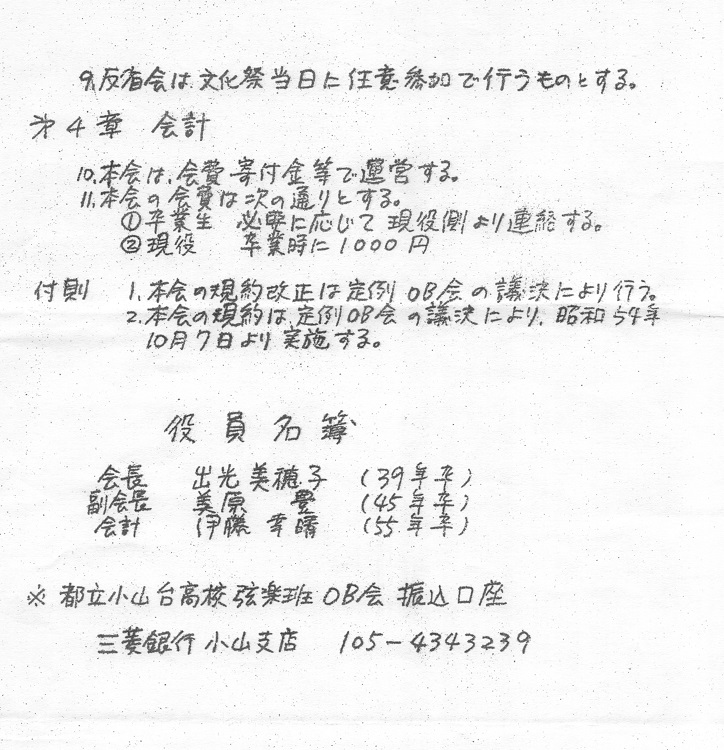 9.反省会は文化祭当日に任意参加で行うものとする。
第4章 会計
10.本会は、会費寄付金等で運営する。
11.本会の会費は次の通りとする。
①卒業生 必要に応じて現役側より連絡する。
②現役 卒業時に1000円
付則 1.本会の規約改正は定例OB会の議決により行う。
2.本会の規約は、定例OB会の議決により、昭和54年
10月7日より実施する。
役員名簿
会長 出光美穂子 (39年卒)
副会長 美原 豊 (45年卒)
会計 伊藤 幸晴 (55年卒)
※都立小山台高校弦楽班OB会 振込口座
三菱銀行小山支店 105-4343239